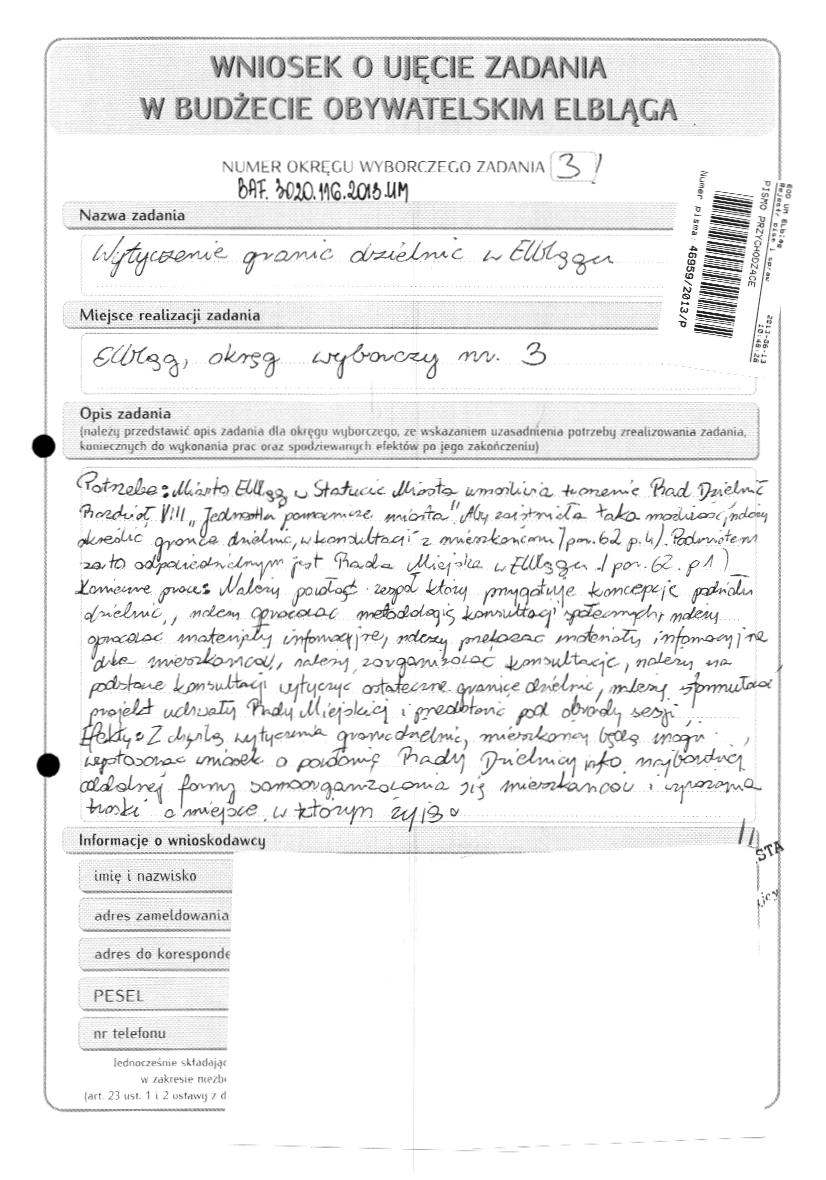 WNIOSEK O UJĘCIE ZADANIA
W BUDŻECIE OBYWATELSKIM ELBLĄGA
NUMER OKRĘGU WYBORCZEGO ZADANIA 3
BAF. 3020.116.2013.UM
EOD UM Elbląg
Rejestr pism i spraw
PISMO PRZYCHODZĄCE
2013-06-13
10:48:28
Numer pisma: 46959/2013/P
Nazwa zadania
Wytyczenie granic dzielnic w Elblągu
Miejsce realizacji zadania
Elbląg, okręg wyborczy nr. 3
Opis zadania
(należy przedstawić opis zadania dla okręgu wyborczego, ze wskazaniem uzasadnienia potrzeby zrealizowania zadania,
koniecznych do wykonania prac oraz spodziewanych efektów po jego zakończeniu)
Potrzeba: Miasto Elbląg w Statucie Miasta umożliwia tworzenie Rad Dzielnic
Rozdział VIII „Jednostki pomocnicze miasta". Aby zaistniała taka możliwość, należy
określić granice dzielnic, w konsultacji z mieszkańcami /par. 62 p. 4/. Podmiotem
za to odpowiedzialnym jest Rada Miejska w Elblągu. / par. 62. p1)
Konieczne prace: Należy powołać zespół który przygotuje koncepcję podziału
dzielnic, należy opracować metodologię konsultacji społecznych, należy
opracować materiały informacyjne, należy przekazać materiały informacyjne
dla mieszkańców, należy zorganizować konsultacje, należy na
podstawie konsultacji wytyczyć ostateczne granice dzielnic, należy sformułować
projekt uchwały Rady Miejskiej i przedstawić pod obrady sesji,
Efekty: Z chwilą wytyczenia granic dzielnic, mieszkańcy będą mogli
wystosować wniosek o powołanie Rady Dzielnicy jako najbardziej
oddolnej formy samoorganizowania się mieszkańców i wyrażania
troski o miejsce w którym żyją.
Informacje o wnioskodawcy
STA
imię i nazwisko
adres zameldowania
adres do koresponde
PESEL
nr telefonu
Jednocześnie składając
w zakresie niezbę
(art. 23 ust. 1 i 2 ustawy z d